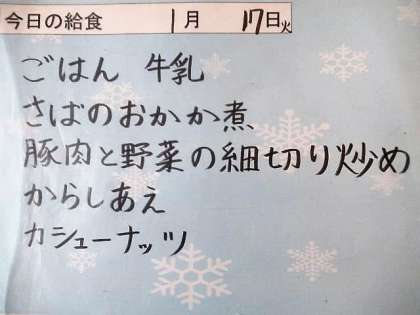 今日の給食 1月 17日火
ごはん 牛乳
さばのおかか煮
豚肉と野菜の細切り炒め
からしあえ
カシューナッツ